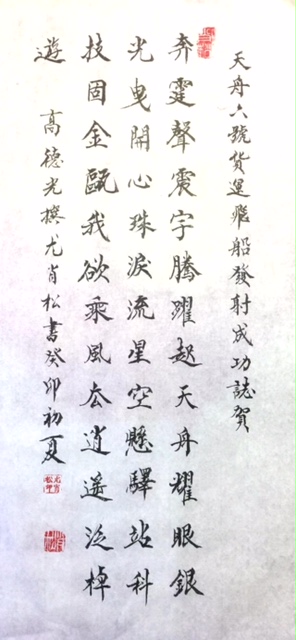 天舟六號貨運飛船發射成功誌賀
奔霆聲震宇騰躍起天舟耀眼銀
光曳開心珠淚流星空懸驛站科
技固金甌我欲乘風去逍遙泛棹
遊
高德光撰尤肖松書癸卯初夏